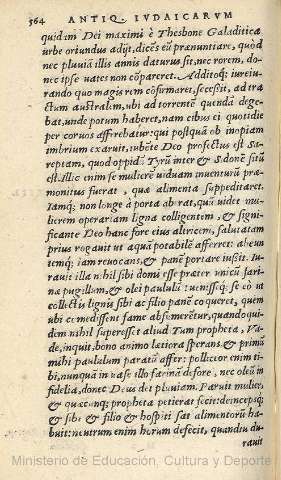 564 ANTIQ. IVDAICARVM
quidam Dei maximi è Thesbone Galaditica
urbe oriundus adijt, dicẽs eũ prænuntiare, quòd
nec pluuiã illis annis daturus sit, nec rorem, do-
nec ipse uates non cõpareret. Additoq; iureiu-
rando quo magis rem cõfirmaret, secessit, ad tra
ctum australem, ubi ad torrentẽ quendã dege-
bat, unde potum haberet, nam cibus ei quotidie
per coruos afferebatur: qui postquã ob inopiam
imbrium exaruit, iubẽte Deo profectus est Sa-
reptam, quod oppidũ Tyrũ inter & Sidonẽ sitũ
est. Illic enim se mulierẽ uiduam inuenturũ præ-
monitus fuerat, quæ alimenta suppeditaret.
Iamq; non longe à porta aberat, quũ uidet mu-
lierem operariam ligna colligentem, & signifi-
cante Deo hanc fore eius altricem, salutatam
prius rogauit ut aquã potabilẽ afferret: abeun
temq; iam reuocans, & panẽ portare iussit. Iu-
rauit illa nihil sibi domi esse præter unicũ fari-
næ pugillum, & olei paululũ: uenisseq; se eò ut
collectis lignis sibi ac filio panẽ coqueret, quem
ubi comedissent fame absumerẽtur, quandoqui-
dem nihil superesset aliud. Tum propheta, Va-
de, inquit, bono animo latiora sperans, & primũ
mihi paululum paratũ affer: polliceor enim ti-
bi, nunquã in uase illo farinã defore, nec oleũ in
fidelia, donec Deus det pluuiam. Paruit mulier,
& quæcunq; propheta petierat fecit: deincepsq;
& sibi & filio & hospiti sat alimentorũ ha-
buit: neutrum enim horum defecit, quandiu du-
rauit
Ministerio de Educación, Cultura y Deporte